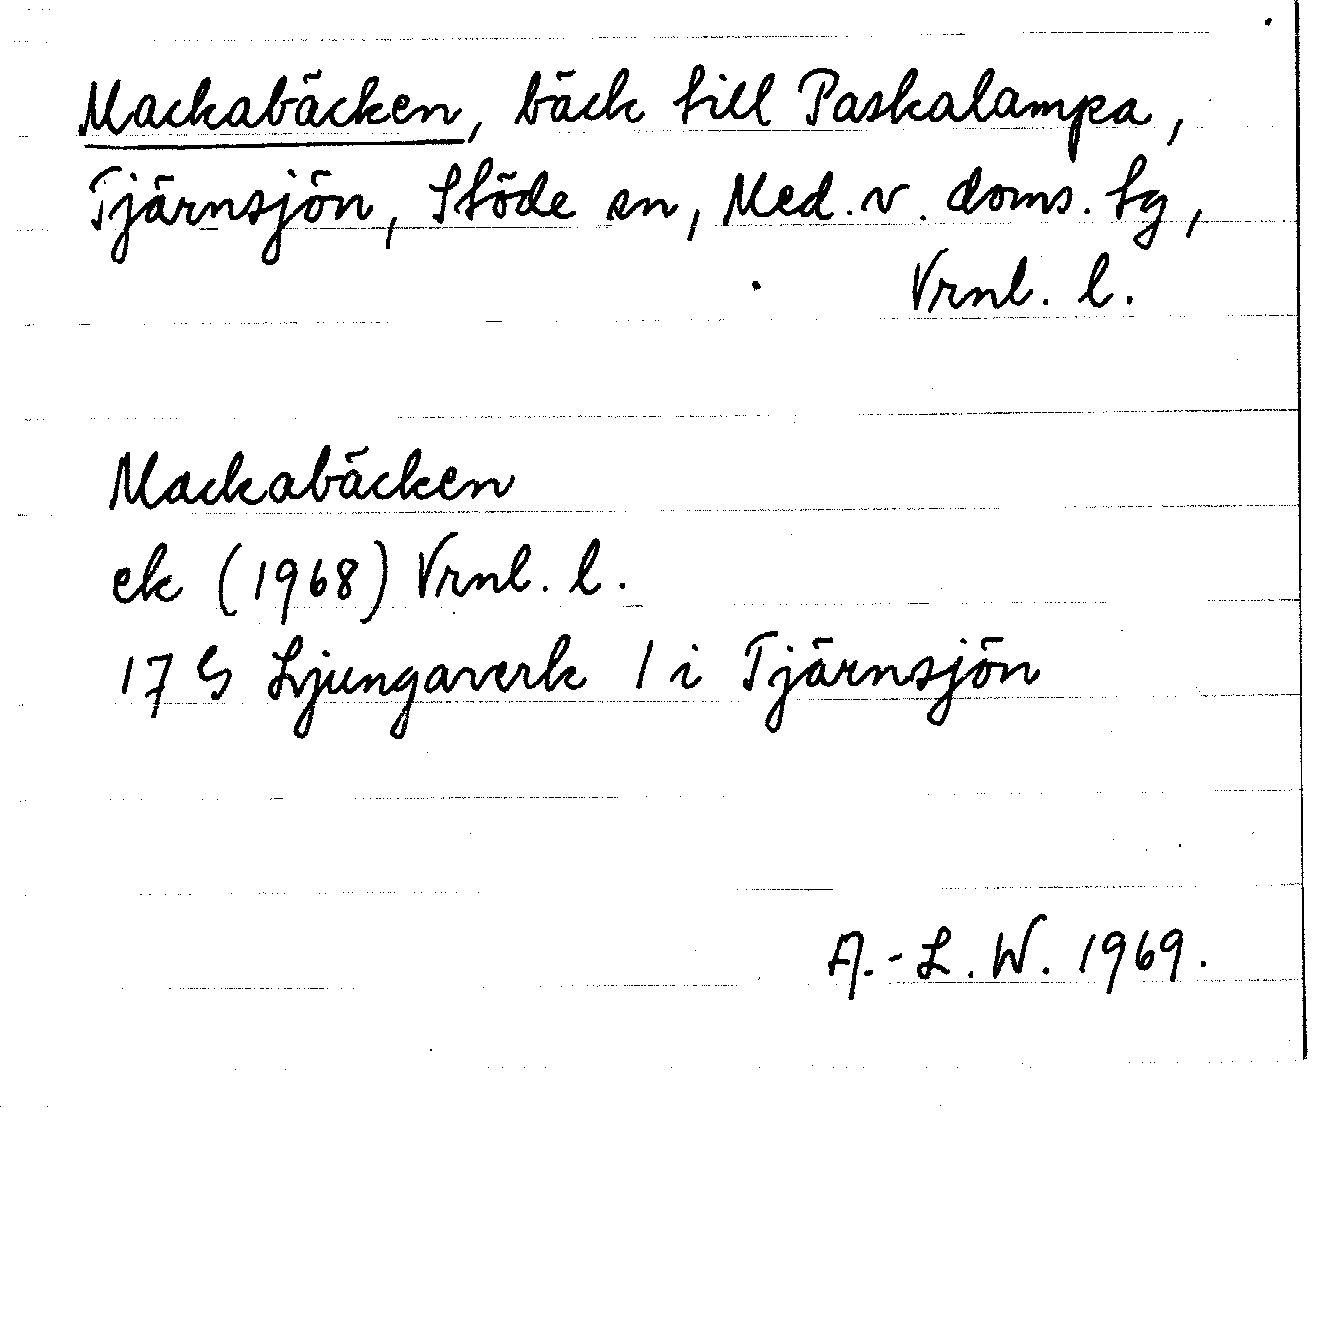 Mackabäcken, bäck till Paskalampa,
Tjärnsjön, Stöde sn, Med. v. doms. tg,
Vrnl. l.
Mackabäcken
ek (1968) Vrnl. l.
17 G Ljungaverk 1 i Tjärnsjön
A.-L. W. 1969.